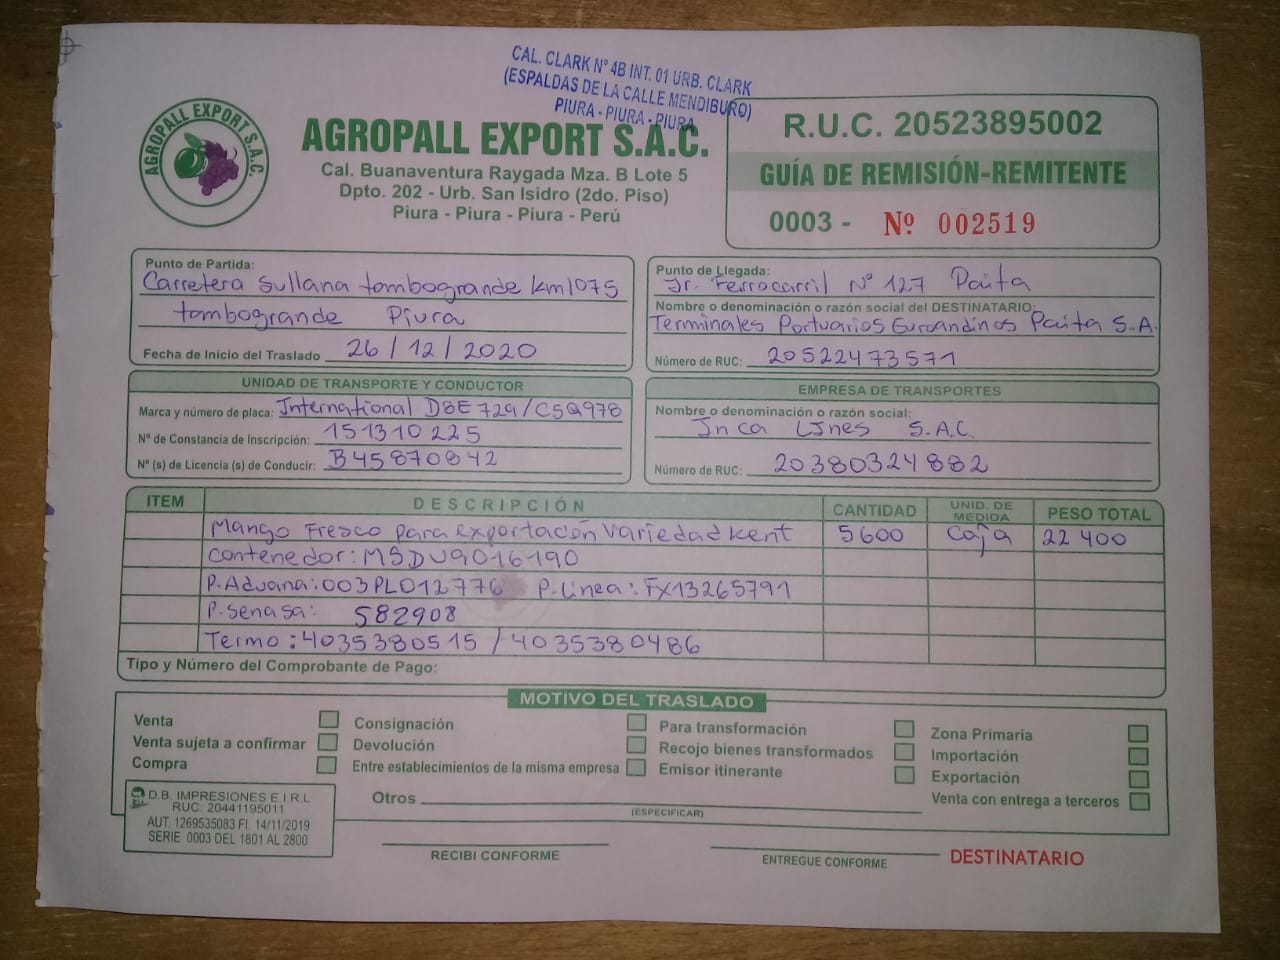 CAL. CLARK Nº 4B INT. 01 URB. CLARK
(ESPALDAS DE LA CALLE MENDIBURO)
PIURA - PIURA - PIURA
AGROPALL EXPORT S.A.C.
AGROPALL EXPORT S.A.C.
Cal. Buanaventura Raygada Mza. B Lote 5
Dpto. 202 - Urb. San Isidro (2do. Piso)
Piura - Piura - Piura - Perú
R.U.C. 20523895002
GUÍA DE REMISIÓN-REMITENTE
0003 - Nº 002519
Punto de Partida:
Carretera Sullana tambogrande km1075
tambogrande Piura
Fecha de Inicio del Traslado 26/12/2020
Punto de Llegada:
Jr. Ferrocarril Nº 127 Paita
Nombre o denominación o razón social del DESTINATARIO:
Terminales Portuarios Euroandinos Paita S.A.
Número de RUC: 20522473571
UNIDAD DE TRANSPORTE Y CONDUCTOR
Marca y número de placa: International D8E729/C5Q978
Nº de Constancia de Inscripción: 151310225
Nº (s) de Licencia (s) de Conducir: B45870842
EMPRESA DE TRANSPORTES
Nombre o denominación o razón social:
Inca Lines S.A.C.
Número de RUC: 20380324882
ITEM DESCRIPCIÓN CANTIDAD UNID. DE MEDIDA PESO TOTAL
Mango Fresco para exportación Variedad Kent 5600 Caja 22 400
Contenedor: MSDU9016190
P.Aduana:003PL012776 P.Linea: FX13265791
P.Senasa: 582908
Termo: 4035380515 / 4035380486
Tipo y Número del Comprobante de Pago:
MOTIVO DEL TRASLADO
Venta
Venta sujeta a confirmar
Compra
Consignación
Devolución
Entre establecimientos de la misma empresa
Para transformación
Recojo bienes transformados
Emisor itinerante
Zona Primaria
Importación
Exportación
Venta con entrega a terceros
Otros
(ESPECIFICAR)
D.B. IMPRESIONES E.I.R.L
RUC: 20441195011
AUT. 1269535083 FI. 14/11/2019
SERIE 0003 DEL 1801 AL 2800
RECIBI CONFORME
ENTREGUE CONFORME
DESTINATARIO